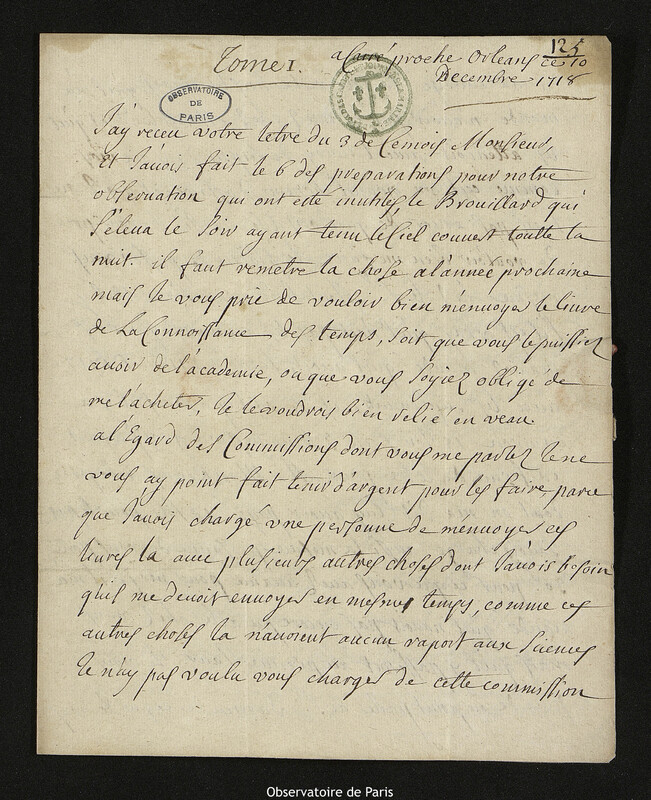 125
Tome 1.
a Carré proche Orleans ce 10
Decembre 1718
OBSERVATOIRE
DE
PARIS
J'ay receu votre letre du 3 de Cemois Monsieur,
et J'auois fait le 6 des preparations pour notre
obseruation qui ont este inutiles, le Brouillard qui
s'éleua le soir ayant tenu le Ciel couuert toutte la
nuit. il faut remetre la chose a l'année prochaine
mais Je vous prie de vouloir bien m'enuoyer le liure
de La Connoissance des temps, soit que vous le puissiez
auoir de l'academie, ou que vous soyiez obligé de
me l'acheter, Je le voudrois bien relié en veau.
a l'Egard des Commissions dont vous me parlez Je ne
vous ay point fait tenir d'argent pour les faire, parce
que J'auois chargé vne personne de m'enuoyer ces
liures la auec plusieurs autres choses dont J'auois besoin
qu'il me deuoit enuoyer en mesme temps, comme ces
autres choses la n'auoient aucun raport aux sciences
Je n'ay pas voulu vous charger de cette commission
Observatoire de Paris